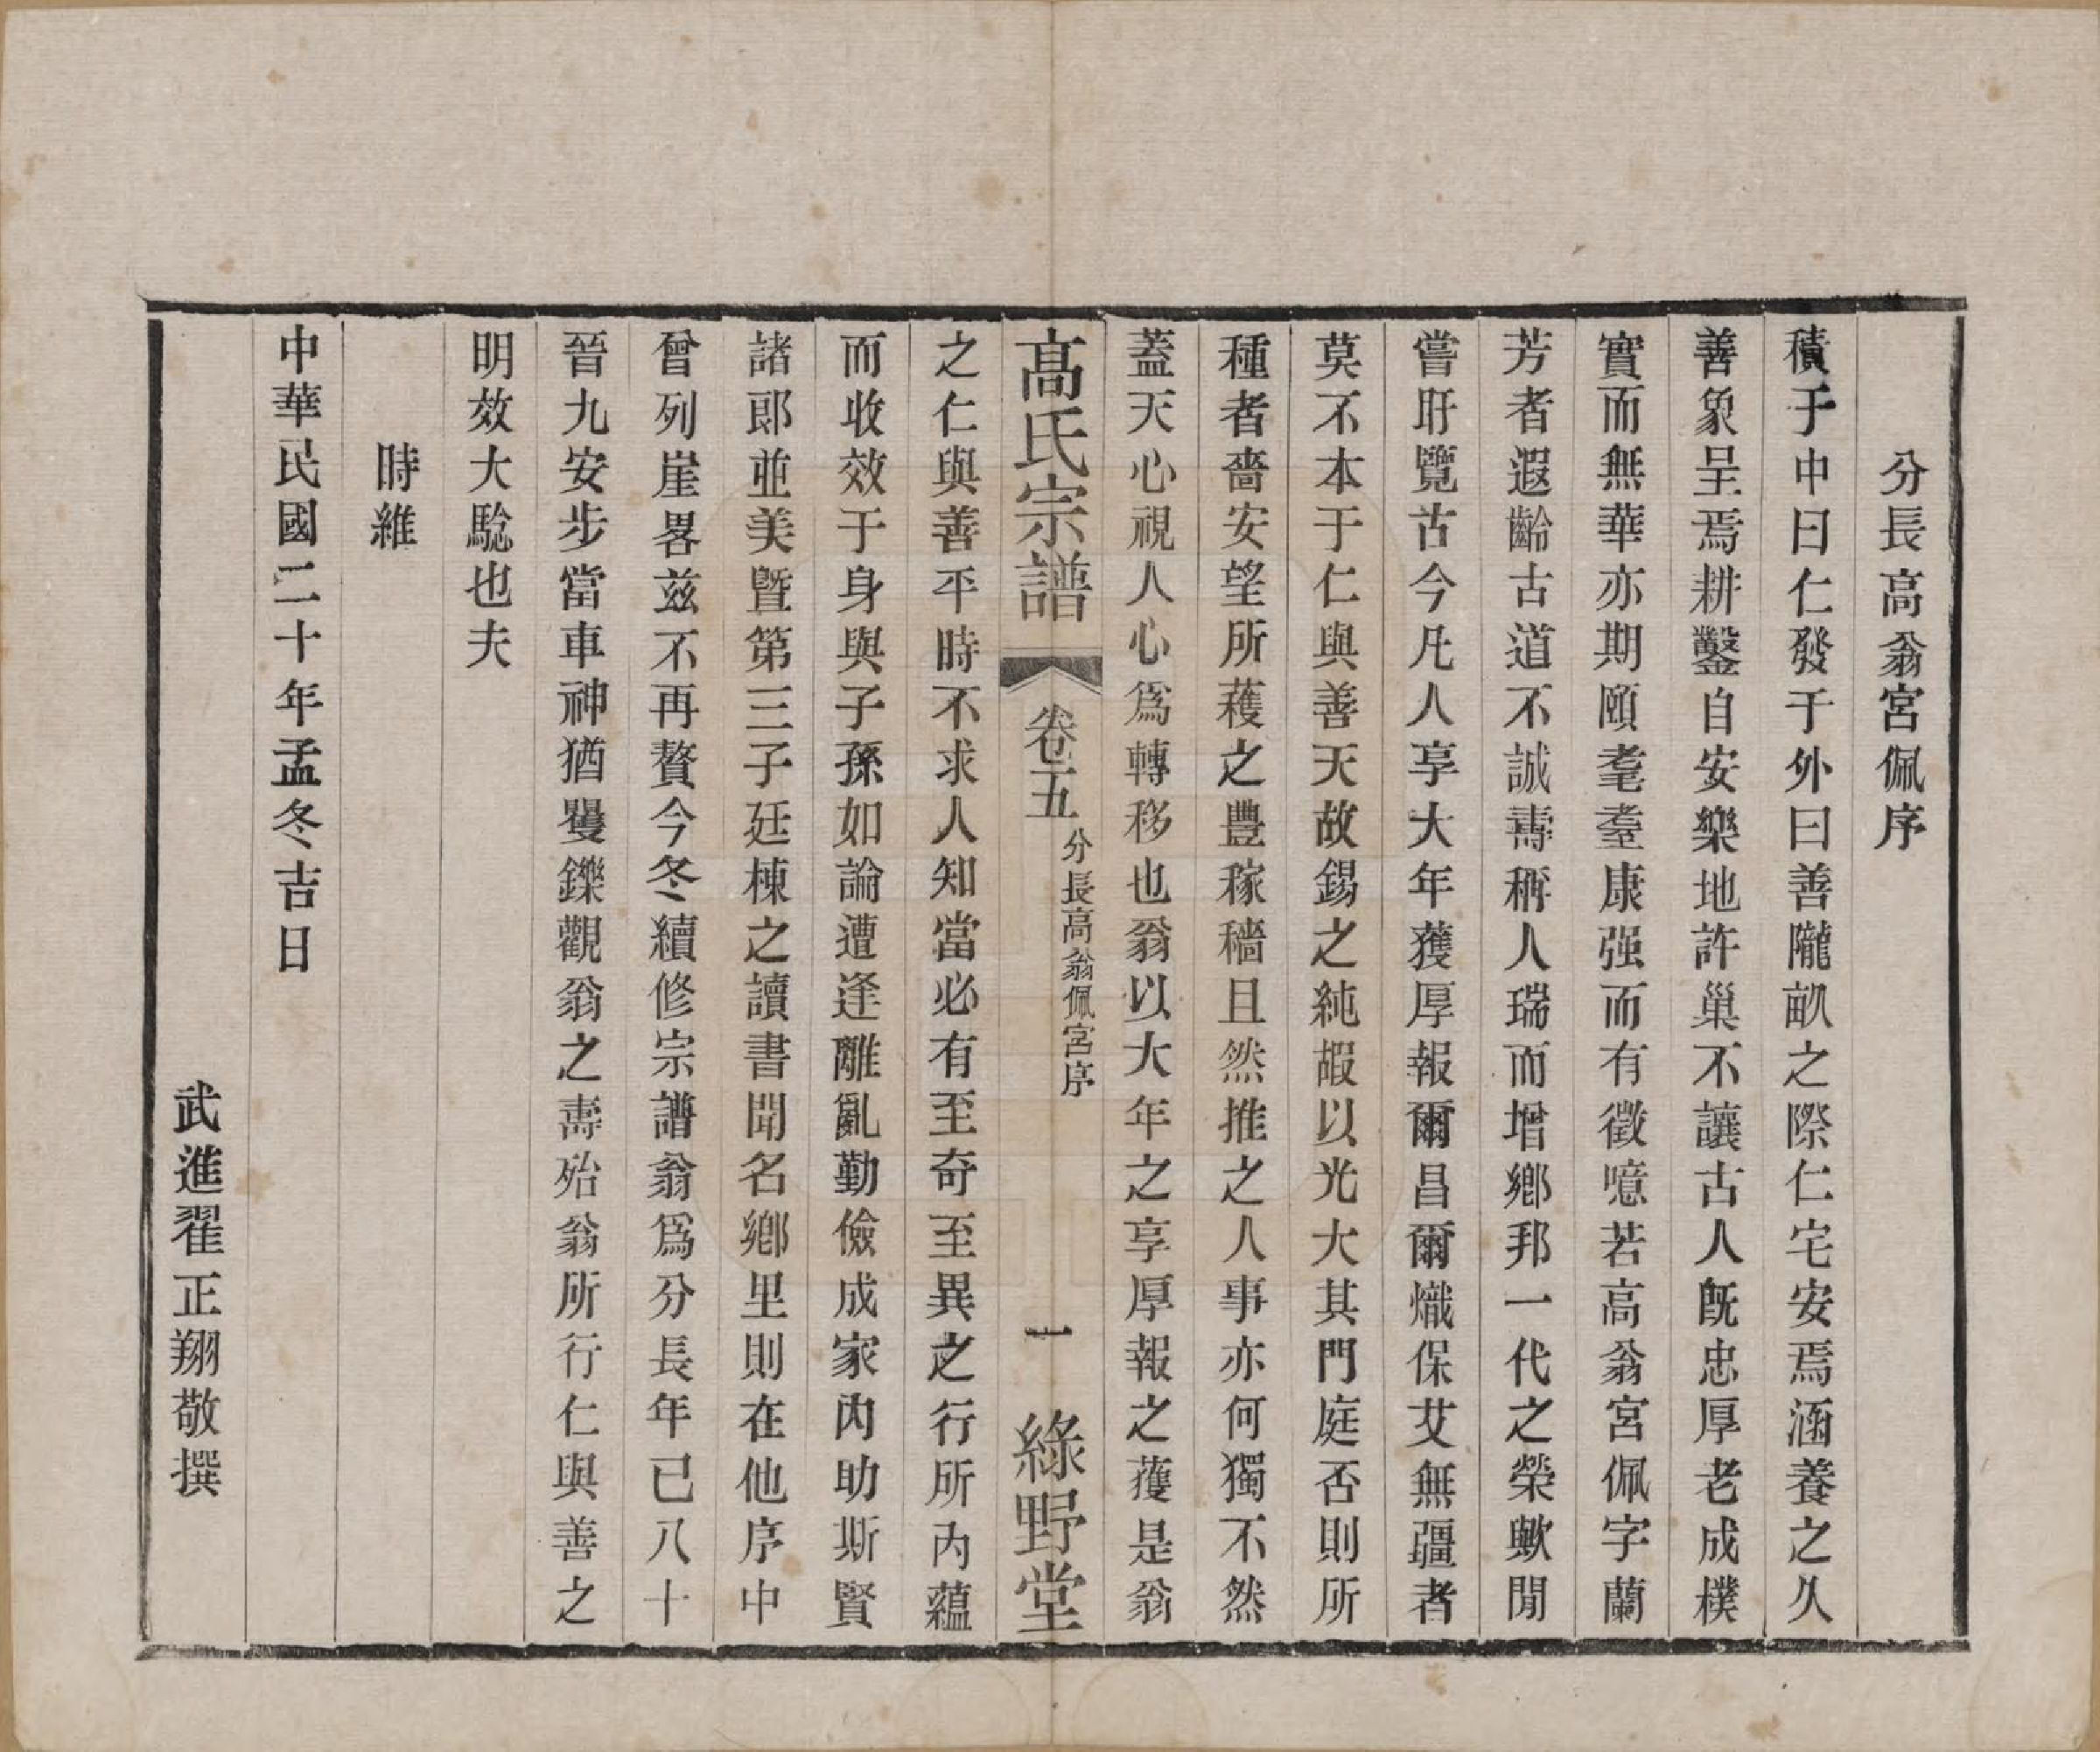 分長高翁宮佩序
積于中曰仁發于外曰善隴畝之際仁宅安焉涵養之久
善象呈焉耕鑿自安樂地許巢不讓古人旣忠厚老成樸
實而無華亦期頤耄耋康强而有徵噫若高翁宮佩字蘭
芳者遐齡古道不誠壽稱人瑞而增鄉邦一代之榮歟閒
嘗盱覽古今凡人享大年獲厚報爾昌爾熾保艾無疆者
莫不本于仁與善天故錫之純嘏以光大其門庭否則所
種者嗇安望所蓰之豐稼穡且然推之人事亦何獨不然
蓋天心視人心爲轉移也翁以大年之享厚報之蓰是翁
高氏宗譜 卷五 分長高翁佩宮序 一 綠野堂
之仁與善平時不求人知當必有至奇至異之行所內蘊
而收效于身與子孫如論遭逢離亂勤儉成家內助斯賢
諸郎並美曁第三子廷棟之讀書聞名鄉里則在他序中
曾列崖畧兹不再贅今冬續修宗譜翁爲分長年已八十
晉九安步當車神猶矍鑠觀翁之壽殆翁所行仁與善之
明效大騐也夫
時維
中華民國二十年孟冬吉日
武進翟正翔敬撰